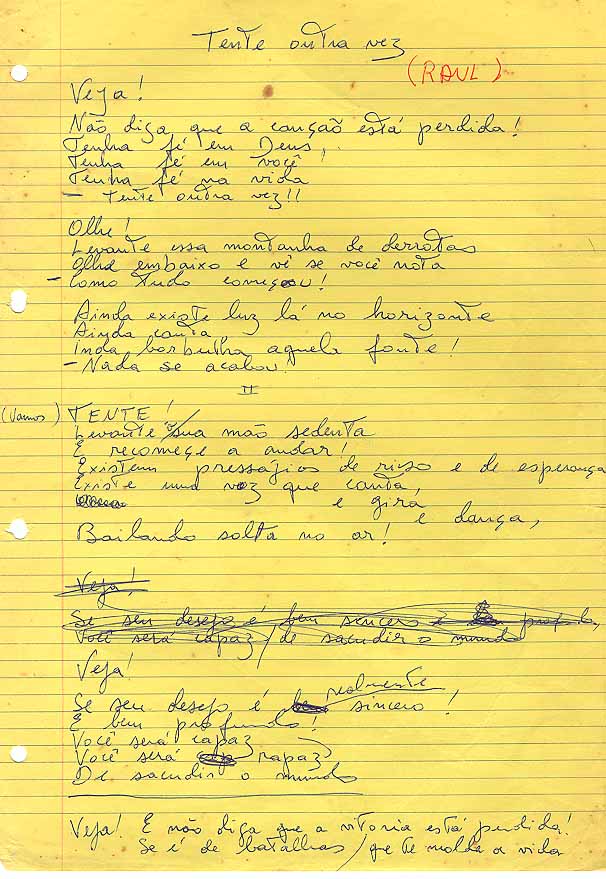 Tente outra vez
(RAUL)
Veja!
Não diga que a canção está perdida!
Tenha fé em Deus,
Tenha fé em você!
Tenha fé na vida
- Tente outra vez!!
Olhe!
Levante essa montanha de derrotas
Olhe embaixo e vê se você nota
- Como tudo começou!
Ainda existe luz lá no horizonte
Ainda canta
Inda borbulha aquela fonte!
- Nada se acabou!
II
(Vamos) TENTE!
Levante sua mão sedenta
E recomeçe a andar!
Existem presságios de riso e de esperança
Existe uma voz que canta,
e gira
e dança,
Bailando solta no ar!
Veja!
Se seu desejo é bem sincero e profundo,
Você será capaz / de sacudir o mundo
Veja!
Se seu desejo é realmente sincero!
E bem profundo!
Você será capaz
Você será rapaz
De sacudir o mundo
Veja! E não diga que a vitoria está perdida!
Se é de batalhas / que te molda a vida